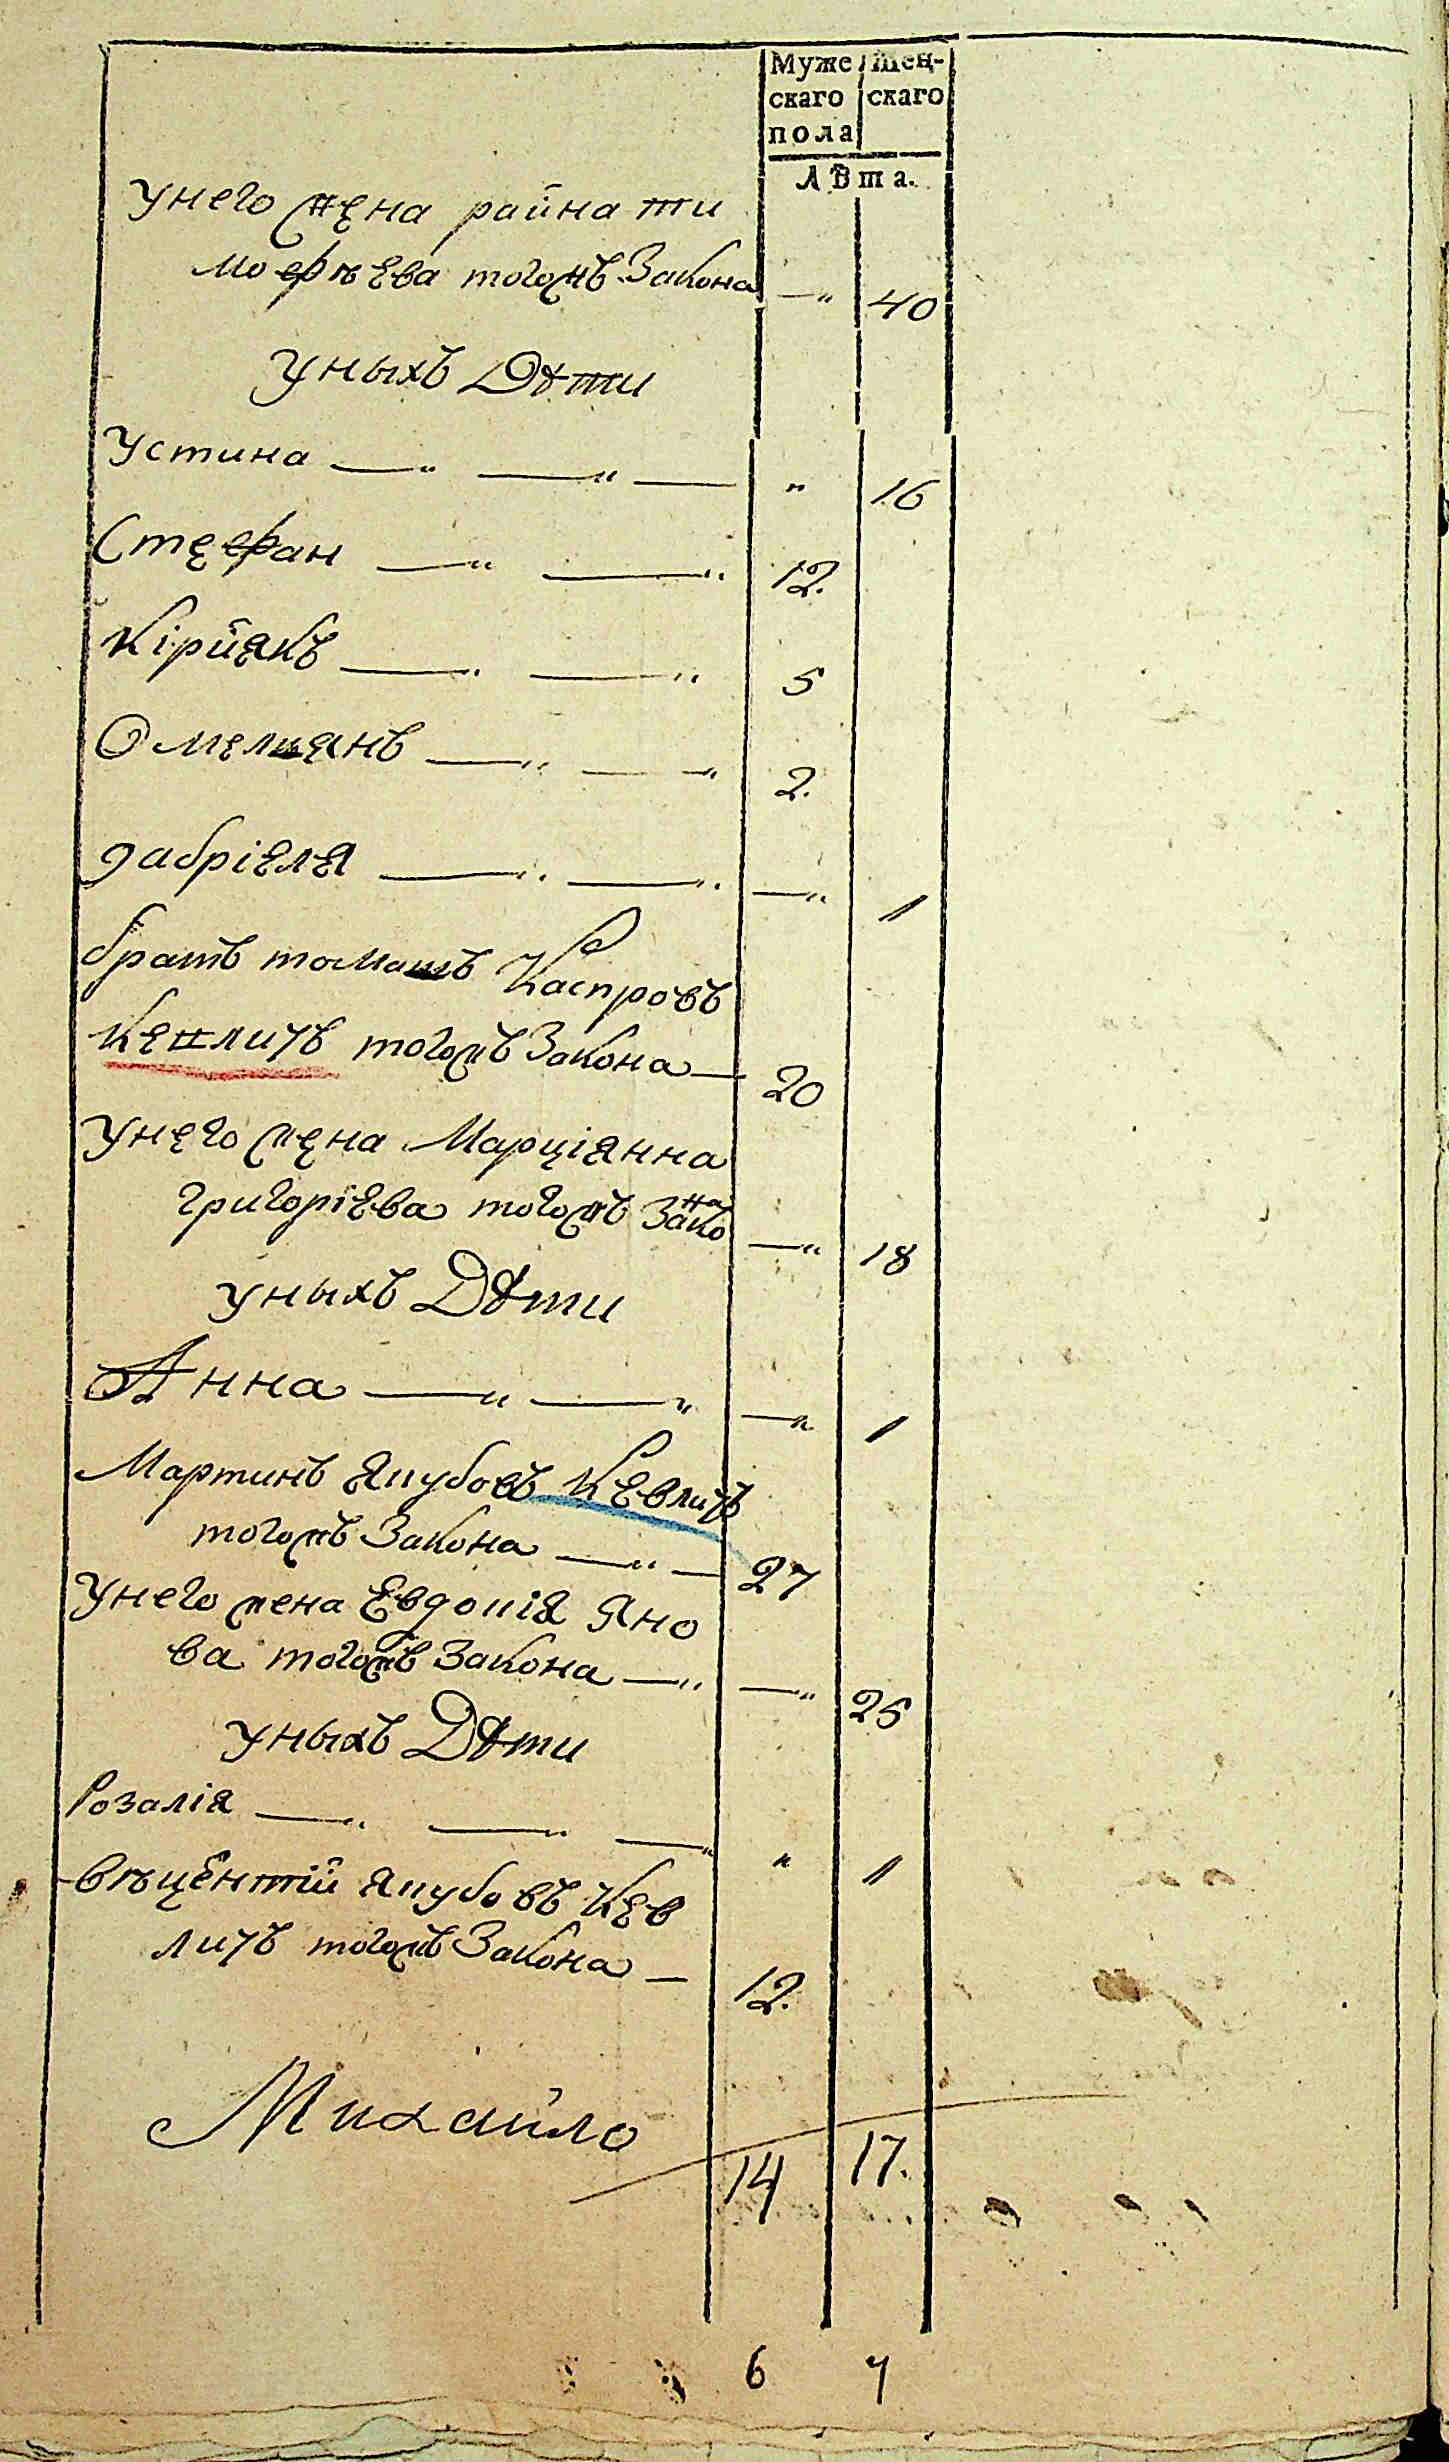 Муже Жен-
скаго скаго
пола
Лѣта.
унего жена райна ти
мофѣева тогожъ Закона —„ 40
уныхъ Дѣти
Устина —„ —„ — „ 16
Стефан —„ —„ 12.
Кірйякъ —„ —„ 5
Омелиянъ —„ —„ 2.
габріеля —„ —„ —„ 1
братъ томашъ Каспровъ
Кежличъ тогожъ Закона — 20
унего жена Марціянна
григоріева тогожъ Закона —„ 18
уныхъ Дѣти
Анна —„ —„ —„ 1
Мартинъ якубовъ Кевличъ
тогожъ Закона —„ — 27
унего жена Евдокія яно
ва тогожъ Закона —„ —„ 25
уныхъ Дѣти
Розалія —„ —„ —„ „ 1
вѣцентій якубовъ Кев
личъ тогожъ Закона — 12.
Михайло
14 17.
6 7